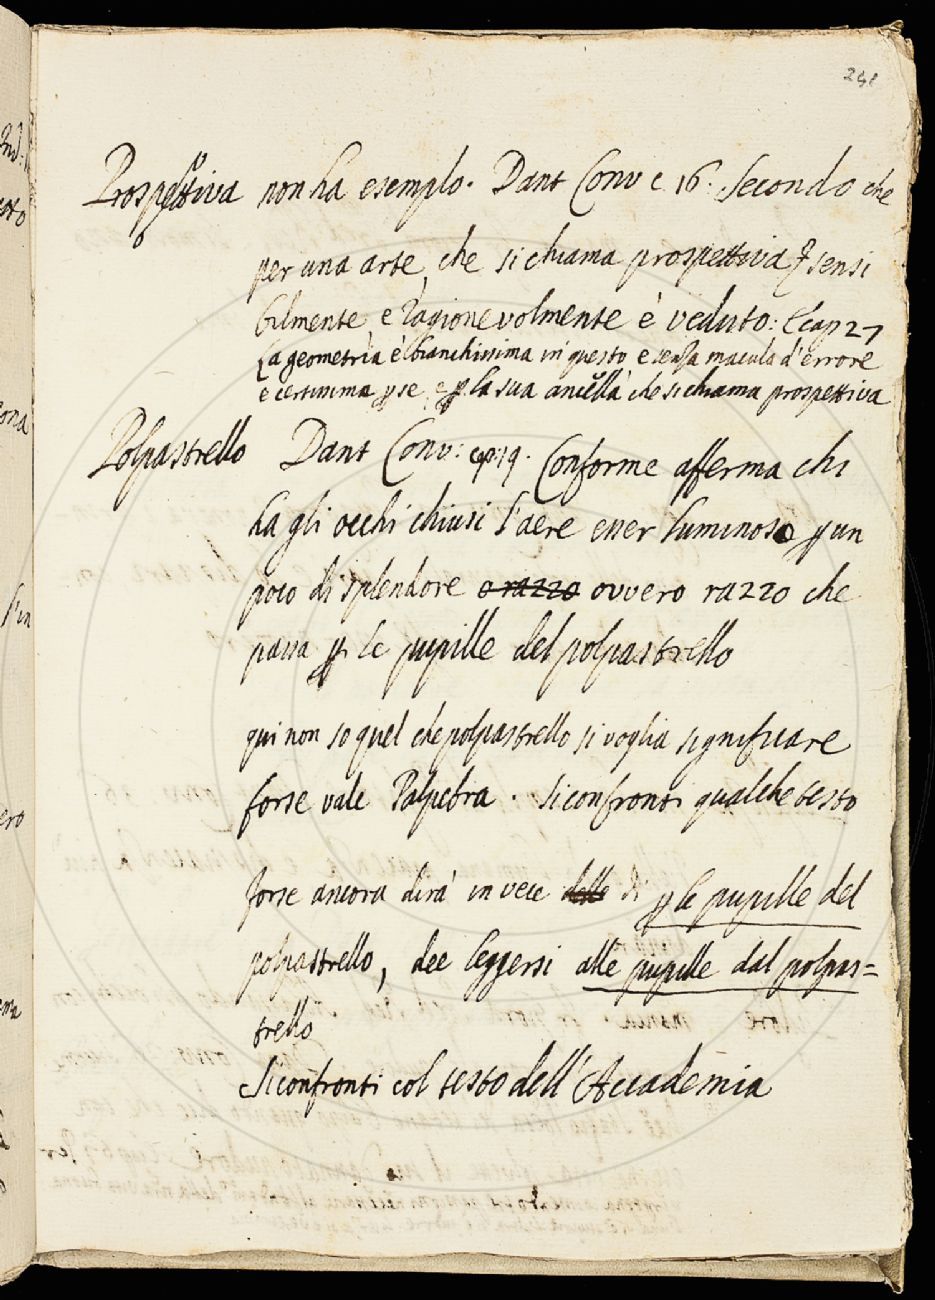 241
Prospettiva non ha esemplo. Dant Conv c 16. Secondo che
per una arte, che si chiama prospettiva sensi
bilmente e ragionevolmente è veduto: E cap 27
La geometria è bianchissima in questo e senza macula d'errore
e certissima p se e p la sua ancella che si chiama prospettiva
Polpastrello Dant Conv: cap: 19. Conforme afferma chi
ha gli occhi chiusi l'aere esser luminoso p un
poco di splendore o razzo ovvero razzo che
passa p le pupille del polpastrello
qui non so quel che polpastrello si voglia significare
forse vale Palpebra. si confronti qualche testo
forse ancora dirà in vece delle di p le pupille del
polpastrello, dee leggersi alle pupille dal polpas=
trello
Si confronti col testo dell'Accademia